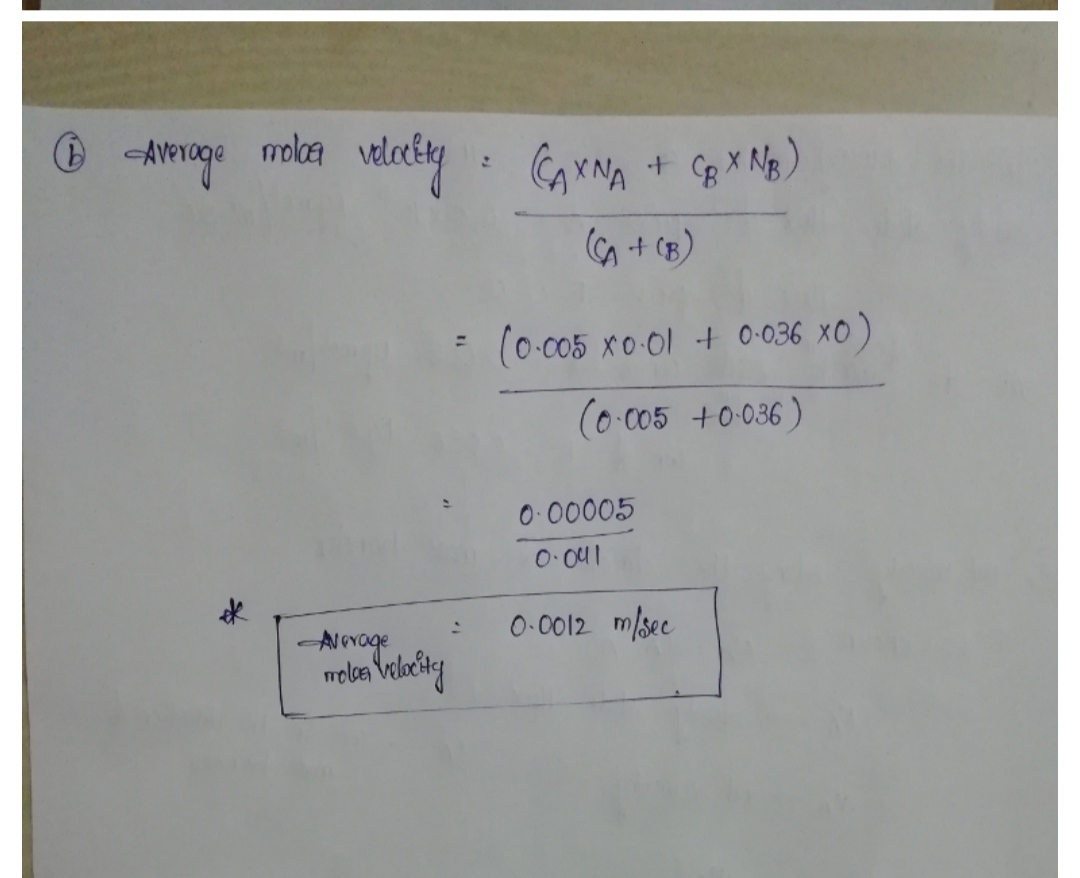 ⓑ Average molar velocity = (CA×NA + CB×NB)
(CA + CB)
= (0.005 ×0.01 + 0.036 ×0)
(0.005 +0.036)
= 0.00005
0.041
Average = 0.0012 m/sec
molar velocity